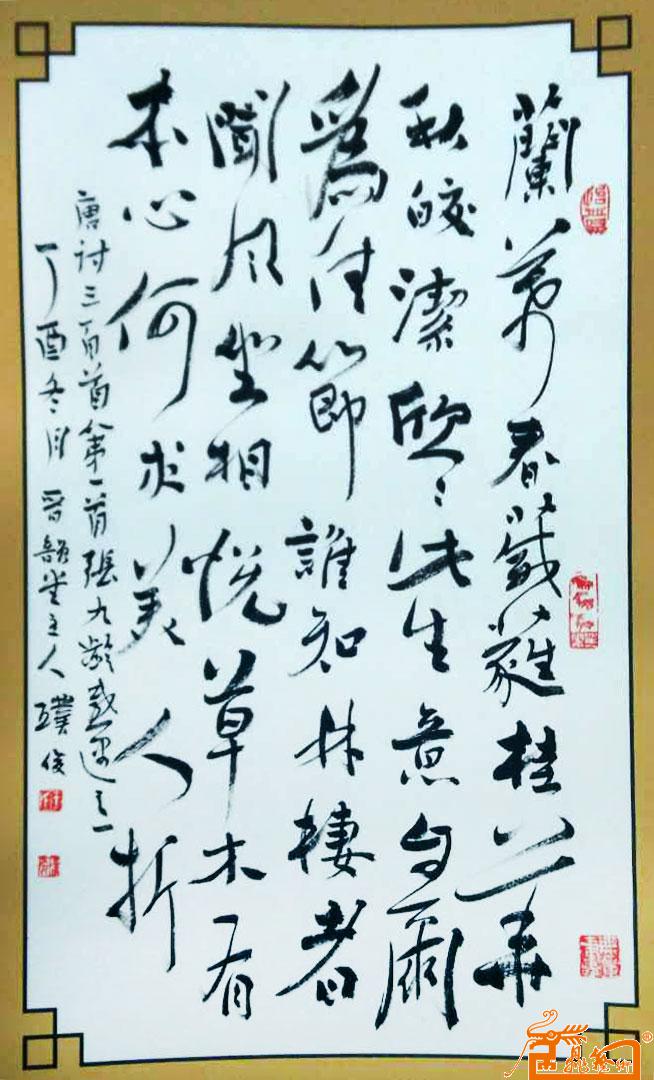 蘭葉春葳蕤桂華
秋皎潔欣〻此生意自爾
爲佳節誰知林棲者
聞風坐相悦草木有
本心何求美人折
唐詩三百首第一首張九齡感遇之一
丁酉冬月晋韻堂主人璞俊